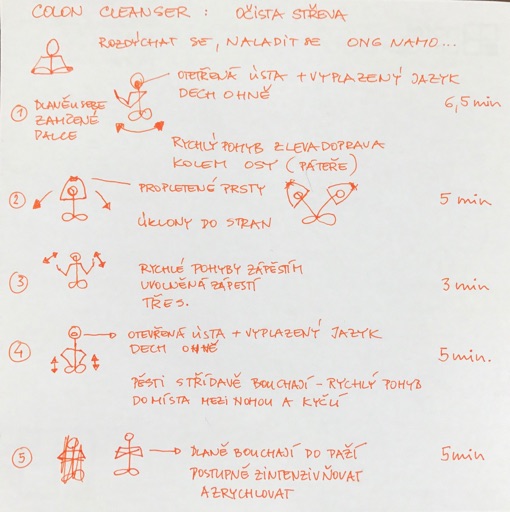 COLON CLEANSER : OČISTA STŘEVA
ROZDÝCHAT SE, NALADIT SE ONG NAMO...
OTEVŘENÁ ÚSTA + VYPLAZENÝ JAZYK
DECH OHNĚ
6,5 min
① DLANĚ U SEBE
ZAMČENÉ
PALCE
RYCHLÝ POHYB ZLEVA DOPRAVA
KOLEM OSY (PÁTEŘE)
② PROPLETENÉ PRSTY
5 min
ÚKLONY DO STRAN
③ RYCHLÉ POHYBY ZÁPĚSTÍM
UVOLNĚNÁ ZÁPĚSTÍ
TŘES.
3 min
④ OTEVŘENÁ ÚSTA + VYPLAZENÝ JAZYK
DECH OHNĚ
5 min.
PĚSTI STŘÍDAVĚ BOUCHAJÍ - RYCHLÝ POHYB
DO MÍSTA MEZI NOHOU A KYČLÍ
⑤ DLANĚ BOUCHAJÍ DO PAŽÍ
5 min
POSTUPNĚ ZINTENZIVŇOVAT
A ZRYCHLOVAT